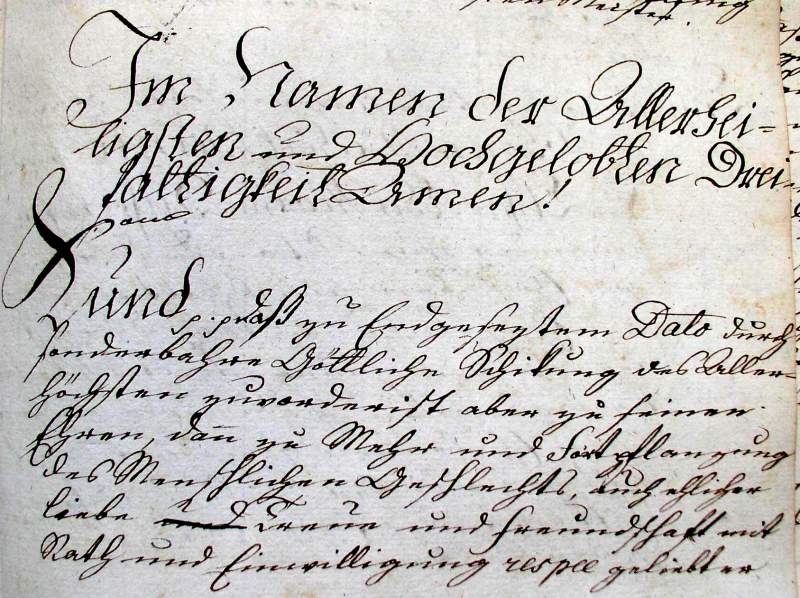 Meister.
Im Namen der Allerhei-
ligsten und Hochgelobten Drei-
faltigkeit Amen!
Kund p. p. daß zu Endgeseztem Dato durch
sonderbahre Göttliche Schikung des Aller-
höchsten zuvorderist aber zu seinen
Ehren, dan zu Mehr und Fortpflanzung
des Menschlichen Geschlechts, auch ehlicher
liebe Treue und freundschaft mit
Rath und Einwilligung respec geliebter